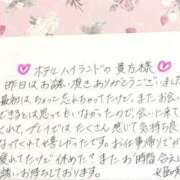 ホテルハイランドの貴方様
昨日はお誘い頂きありがとうございました
最初はちょっと忘れちゃってたけど、またお会い
できるとは思ってもいなかったので、会いに来
てくれて、プレイではたくさん感じて気持ち良く
なっちゃって嬉しかったです。お仕事帰りで疲
れてたけどゆっくり休めた？またお時間合えば
お誘いお待ちしております。